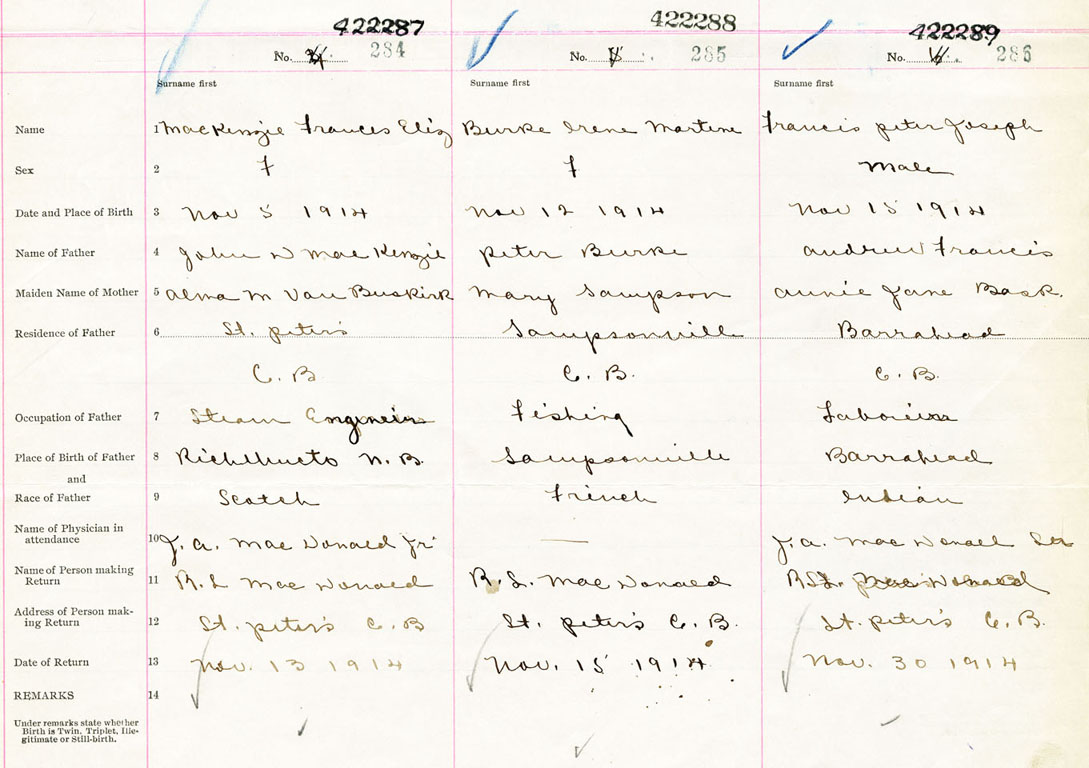 422287 422288 422289
No. 284 No. 285 No. 286
Surname first Surname first Surname first
Name 1 MacKenzie Frances Eliz Burke Irene Martine Francis Peter Joseph
Sex 2 F F Male
Date and Place of Birth 3 Nov 5 1914 Nov 12 1914 Nov 15 1914
Name of Father 4 John W MacKenzie Peter Burke Andrew Francis
Maiden Name of Mother 5 Alma M Van Buskirk Mary Sampson Annie Jane Bask.
Residence of Father 6 St. Peter's Sampsonville Barrahead
C. B C. B. C. B.
Occupation of Father 7 Steam Engineer Fishing
Place of Birth of Father 8 Richibucto N. B. Sampsonville Barrahead
and
Race of Father 9 Scotch French Indian
Name of Physician in
attendance 10 J. A. MacDonald Jr. — J. A. MacDonald
Name of Person making
Return 11 R. L MacDonald R. L. MacDonald MacDonald
Address of Person mak-
ing Return 12 St. Peter's C. B St. Peter's C. B. St. Peter's C. B.
Date of Return 13 Nov. 13 1914 Nov. 15 1914 Nov. 30 1914
REMARKS 14
Under remarks state whether
Birth is Twin, Triplet, Ille-
gitimate or Still-birth.